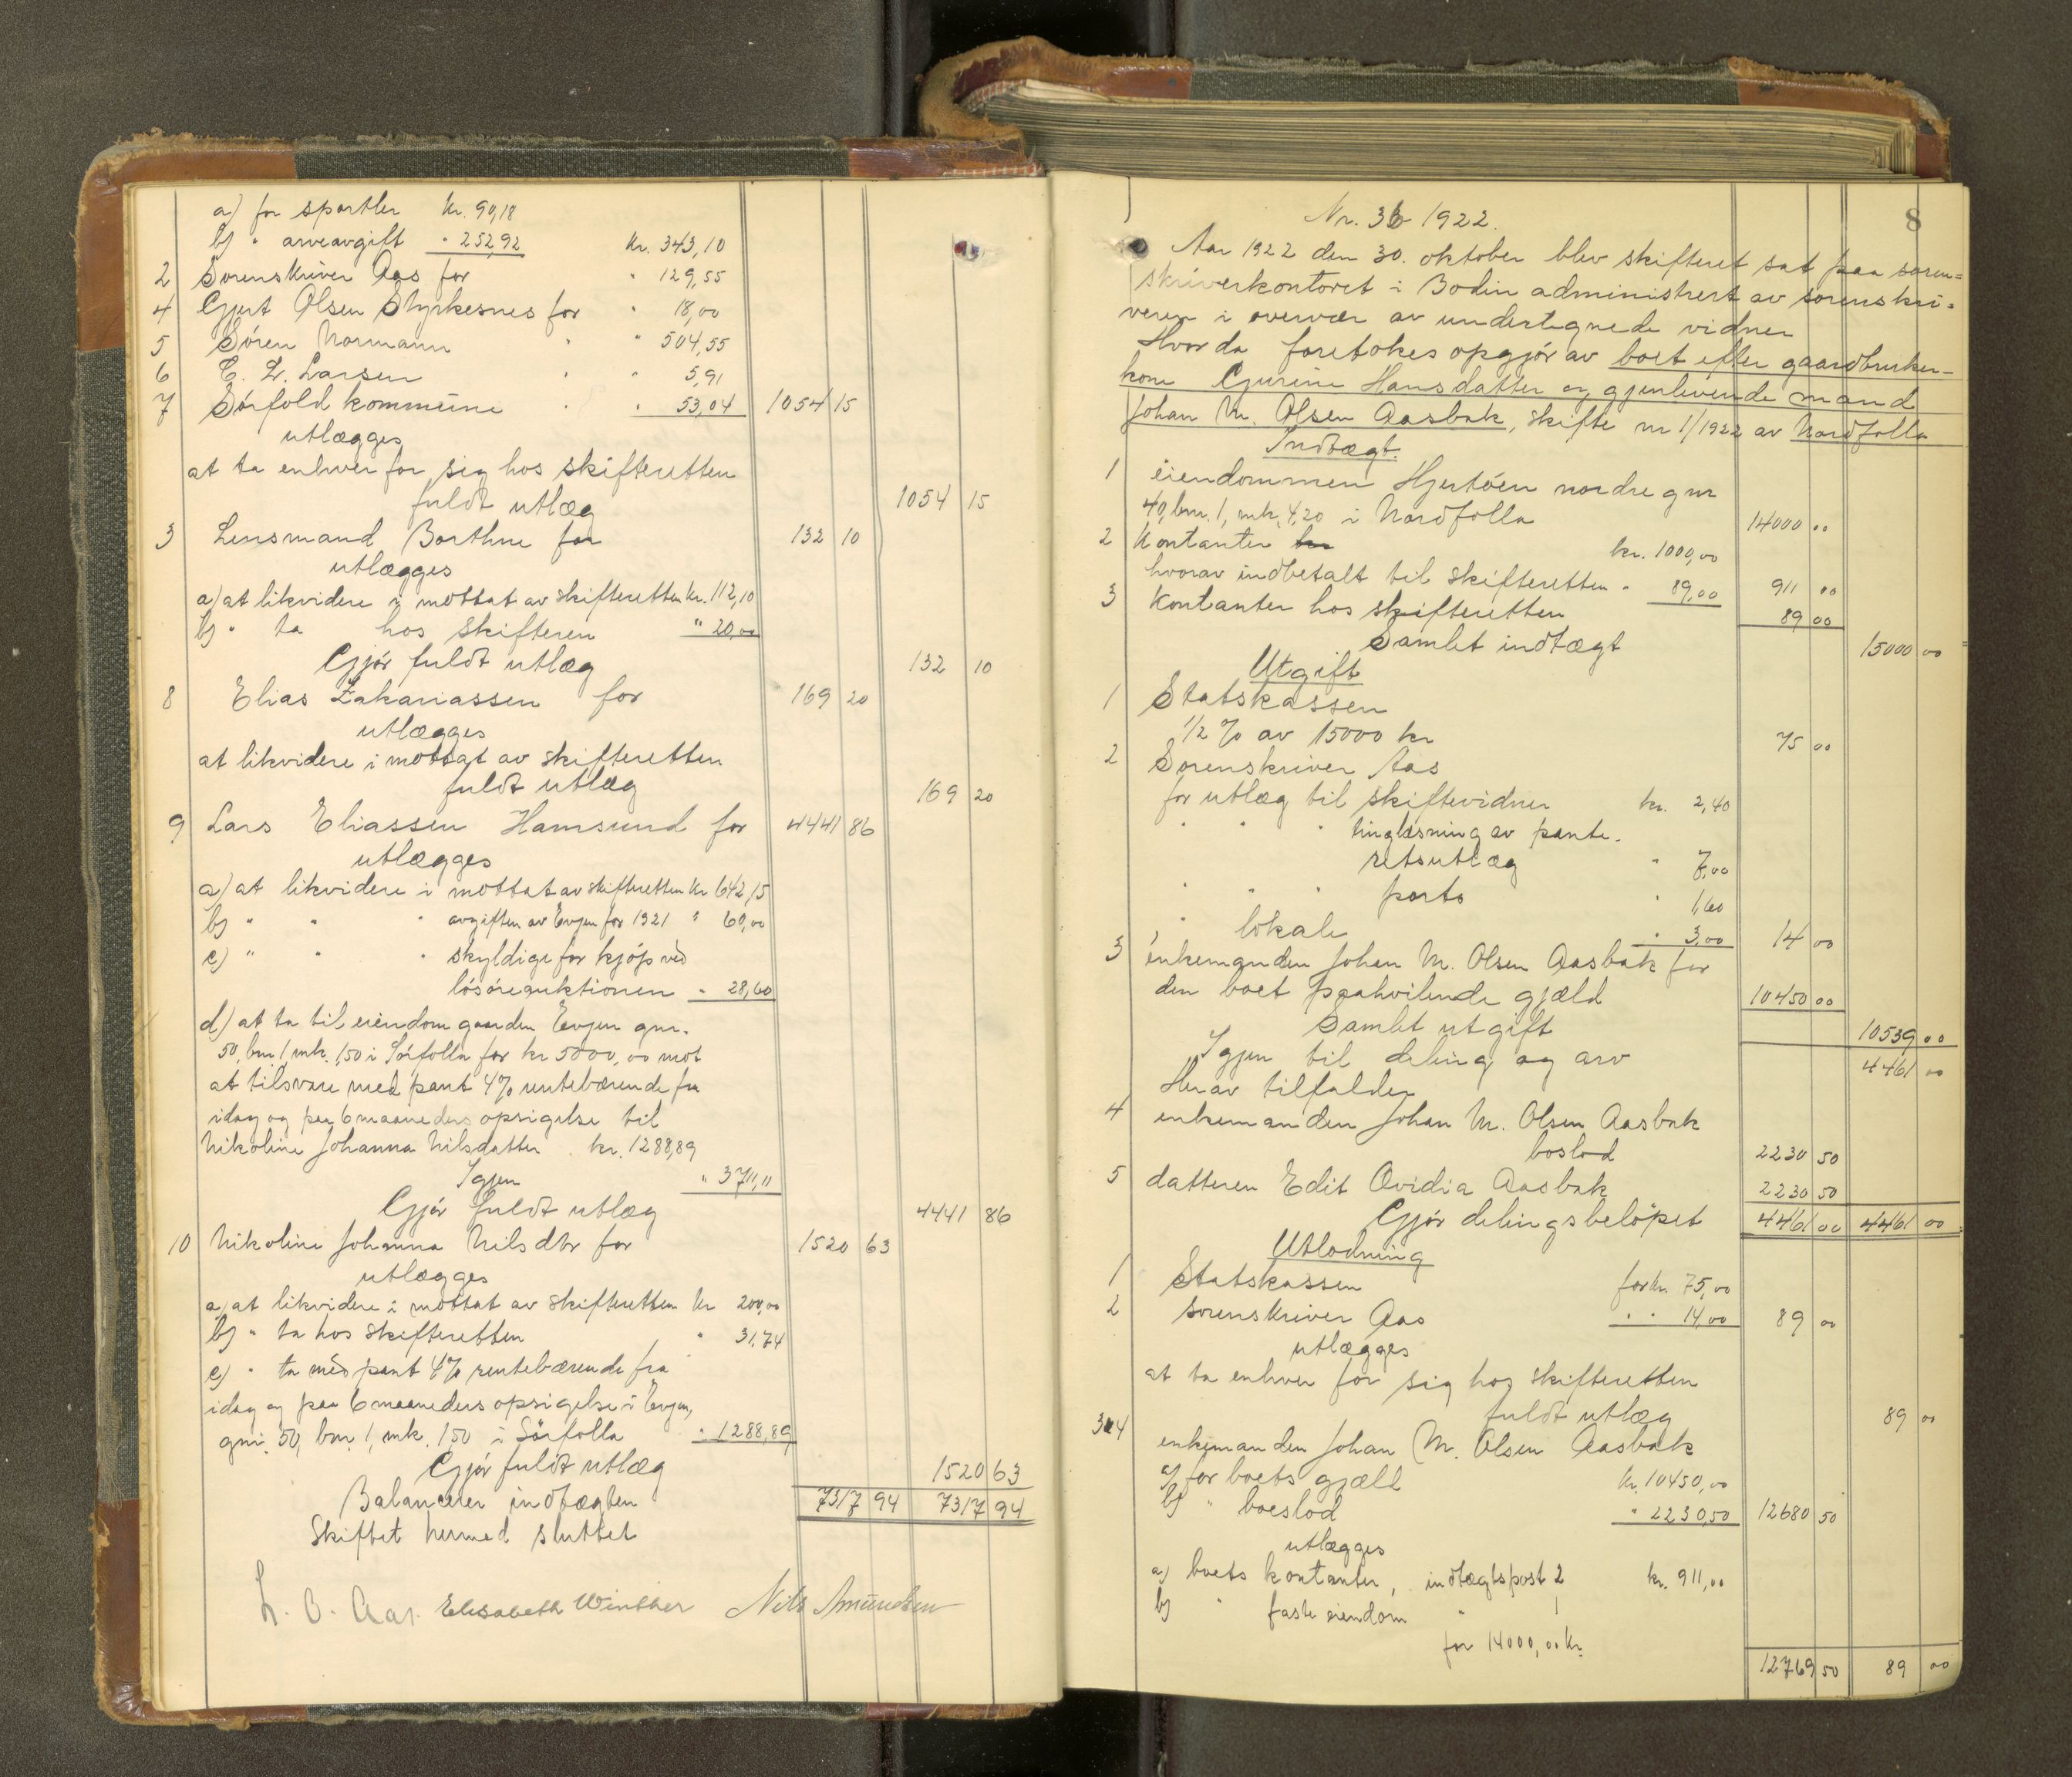 a) for sportler kr. 90,18
b) " arveavgift " 252,92 kr. 343,10
2 Sorenskriver Aas for " 129,55
4 Gjert Olsen Styrkesnes for " 18,00
5 Søren Normann " " 504,55
6 C. Z. Larsen " " 5,91
7 Sørfold kommune " " 53,04 1054 15
utlægges
at ta enhver for sig hos skifteretten
fuldt utlæg 1054 15
3 Lensmand Borthne for 132 10
utlægges
a) at likvidere i mottat av skifteretten kr. 112,10
b) " ta hos skifteren " 20,00
Gjør fuldt utlæg 132 10
8 Elias Zakariassen for 169 20
utlægges
at likvidere i mottat av skifteretten
fuldt utlæg 169 20
9 Lars Eliassen Hamsund for 4441 86
utlægges
a) at likvidere i mottat av skifteretten kr 642,15
b) " " " avgiften av Evjen for 1921 " 60,00
c) " " " skyldige for kjøp ved
løsøreauktionen " 28,60
d) at ta til eiendom gaarden Evjen gnr.
50, bnr 1 mk. 1,50 i Sørfolla for kr 5000,00 mot
at tilsvare med pant 4% rentebærende fra
idag og paa 6 maaneders opsigelse til
Nikoline Johanna Nilsdatter kr. 1288,89
Igjen " 3711,11
Gjør fuldt utlæg 4441 86
10 Nikoline Johanna Nilsdtr for 1520 63
utlægges
a) at likvidere i mottat av skifteretten kr 200,00
b) " ta hos skifteretten " 31,74
c) " ta med pant 4% rentebærende fra
idag og paa 6 maaneders opsigelse i Evjen,
gnr. 50, bnr. 1, mk. 1,50 i Sørfolla " 1288,89
Gjør fuldt utlæg 1520 63
Balancerer indtægten 7317 94 7317 94
Skiftet hermed sluttet
L. O. Aas. Elisabeth Winther Nils Amundsen
8
Nr. 36 1922.
Aar 1922 den 30. oktober blev skifteret sat paa soren=
skriverkontoret i Bodin administrert av sorenskri=
veren i overvær av undertegnede vidner
Hvor da foretokes opgjør av boet efter gaardbruker-
kone Gjurine Hansdatter og gjenlevende mand
Johan M. Olsen Aasbak, skifte nr 1/1922 av Nordfolla
Indtægt.
1 eiendommen Hjertøen nordre gnr
40, bnr. 1, mk. 4,20 i Nordfolla 14000 00
2 Kontanter kr kr. 1000,00
hvorav indbetalt til skifteretten " 89,00 911 00
3 Kontanter hos skifteretten 89 00
Samlet indtægt 15000 00
Utgift
1 Statskassen
1/2 % av 15000 kr 75 00
2 Sorenskriver Aas
for utlæg til skiftevidner kr. 2,40
" " " tinglæsning av pante-
retsutlæg " 7,00
" " " porto " 1,60
" lokale " 3,00 14 00
3 enkemanden Johan M. Olsen Aasbak for
den boet paahvilende gjæld 10450 00
Samlet utgift 10539 00
Igjen til deling og arv 4461 00
Herav tilfalder
4 enkemanden Johan M. Olsen Aasbak
boslod 2230 50
5 datteren Edit Ovidia Aasbak 2230 50
Gjør delingsbeløpet 4461 00 4461 00
Utlodning
1 Statskassen for kr. 75,00
2 sorenskriver Aas " " 14,00 89 00
utlægges
at ta enhver for sig hos skifteretten
fuldt utlæg 89 00
3 4 enkemanden Johan M. Olsen Aasbak
a) for boets gjæld kr. 10450,00
b) " boeslod " 2230,50 12680 50
utlægges
a) boets kontanter, indtægtspost 2 kr. 911,00
b) " faste eiendom " 1
for 14000,00 kr.
12769 50 89 00